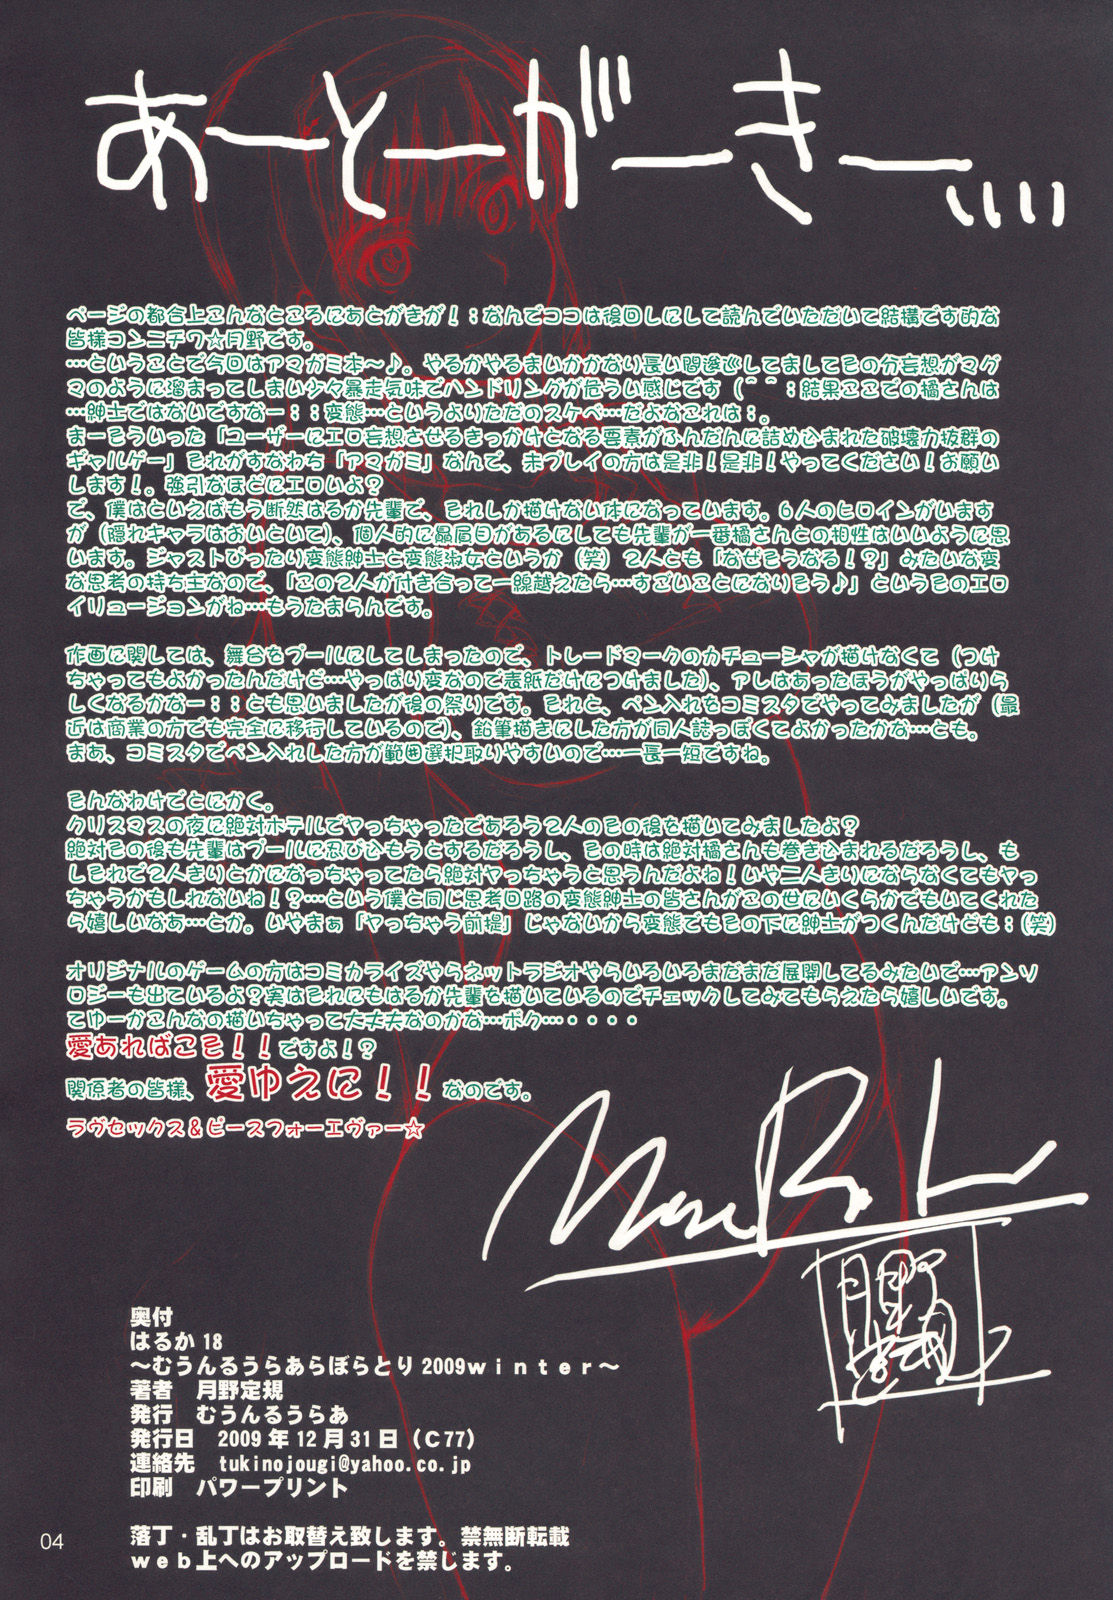 あーとーがーきー…
ページの都合上こんなところにあとがきが！；なんでココは後回しにして読んでいただいて結構です的な
皆様コンニチワ☆月野です。
…ということで今回はアマガミ本～♪。やるかやるまいかかなり長い間逡巡してましてその分妄想がマグ
マのように溜まってしまい少々暴走気味でハンドリングが危うい感じです（＾＾；結果ここでの橘さんは
…紳士ではないですなー；；変態…というよりただのスケベ…だよなこれは；。
まーそういった「ユーザーにエロ妄想させるきっかけとなる要素がふんだんに詰め込まれた破壊力抜群の
ギャルゲー」それがすなわち「アマガミ」なんで、未プレイの方は是非！是非！やってください！お願い
します！。強引なほどにエロいよ？
で、僕はといえばもう断然はるか先輩で、それしか描けない体になっています。6人のヒロインがいます
が（隠れキャラはおいといて）、個人的に贔屓目があるにしても先輩が一番橘さんとの相性はいいように思
います。ジャストぴったり変態紳士と変態淑女というか（笑）2人とも「なぜそうなる！？」みたいな変
な思考の持ち主なので、「この2人が付き合って一線越えたら…すごいことになりそう♪」というそのエロ
イリュージョンがね…もうたまらんです。
作画に関しては、舞台をプールにしてしまったので、トレードマークのカチューシャが描けなくて（つけ
ちゃってもよかったんだけど…やっぱり変なので表紙だけにつけました）、アレはあったほうがやっぱりら
しくなるかなー；；とも思いましたが後の祭りです。それと、ペン入れをコミスタでやってみましたが（最
近は商業の方でも完全に移行しているので）、鉛筆描きにした方が同人誌っぽくてよかったかな…とも。
まあ、コミスタでペン入れした方が範囲選択取りやすいので…一長一短ですね。
そんなわけでとにかく。
クリスマスの夜に絶対ホテルでヤっちゃったであろう2人のその後を描いてみましたよ？
絶対その後も先輩はプールに忍び込もうとするだろうし、その時は絶対橘さんも巻き込まれるだろうし、も
しそれで2人きりとかになっちゃってたら絶対ヤっちゃうと思うんだよね！いや二人きりにならなくてもヤっ
ちゃうかもしれないね！？…という僕と同じ思考回路の変態紳士の皆さんがこの世にいくらかでもいてくれた
ら嬉しいなあ…とか。いやまぁ「ヤっちゃう前提」じゃないから変態でもその下に紳士がつくんだけども；（笑）
オリジナルのゲームの方はコミカライズやらネットラジオやらいろいろまだまだ展開してるみたいで…アンソ
ロジーも出ているよ？実はそれにもはるか先輩を描いているのでチェックしてみてもらえたら嬉しいです。
てゆーかこんなの描いちゃって大丈夫なのかな…ボク…・・・・
愛あればこそ！！ですよ！？
関係者の皆様、愛ゆえに！！なのです。
ラヴセックス＆ピースフォーエヴァー☆
奥付
はるか18
～むうんるうらあらぼらとり2009winter～
著者　月野定規
発行　むうんるうらあ
発行日　2009年12月31日（C77）
連絡先　tukinojougi@yahoo.co.jp
印刷　パワープリント
落丁・乱丁はお取替え致します。禁無断転載
web上へのアップロードを禁じます。
04